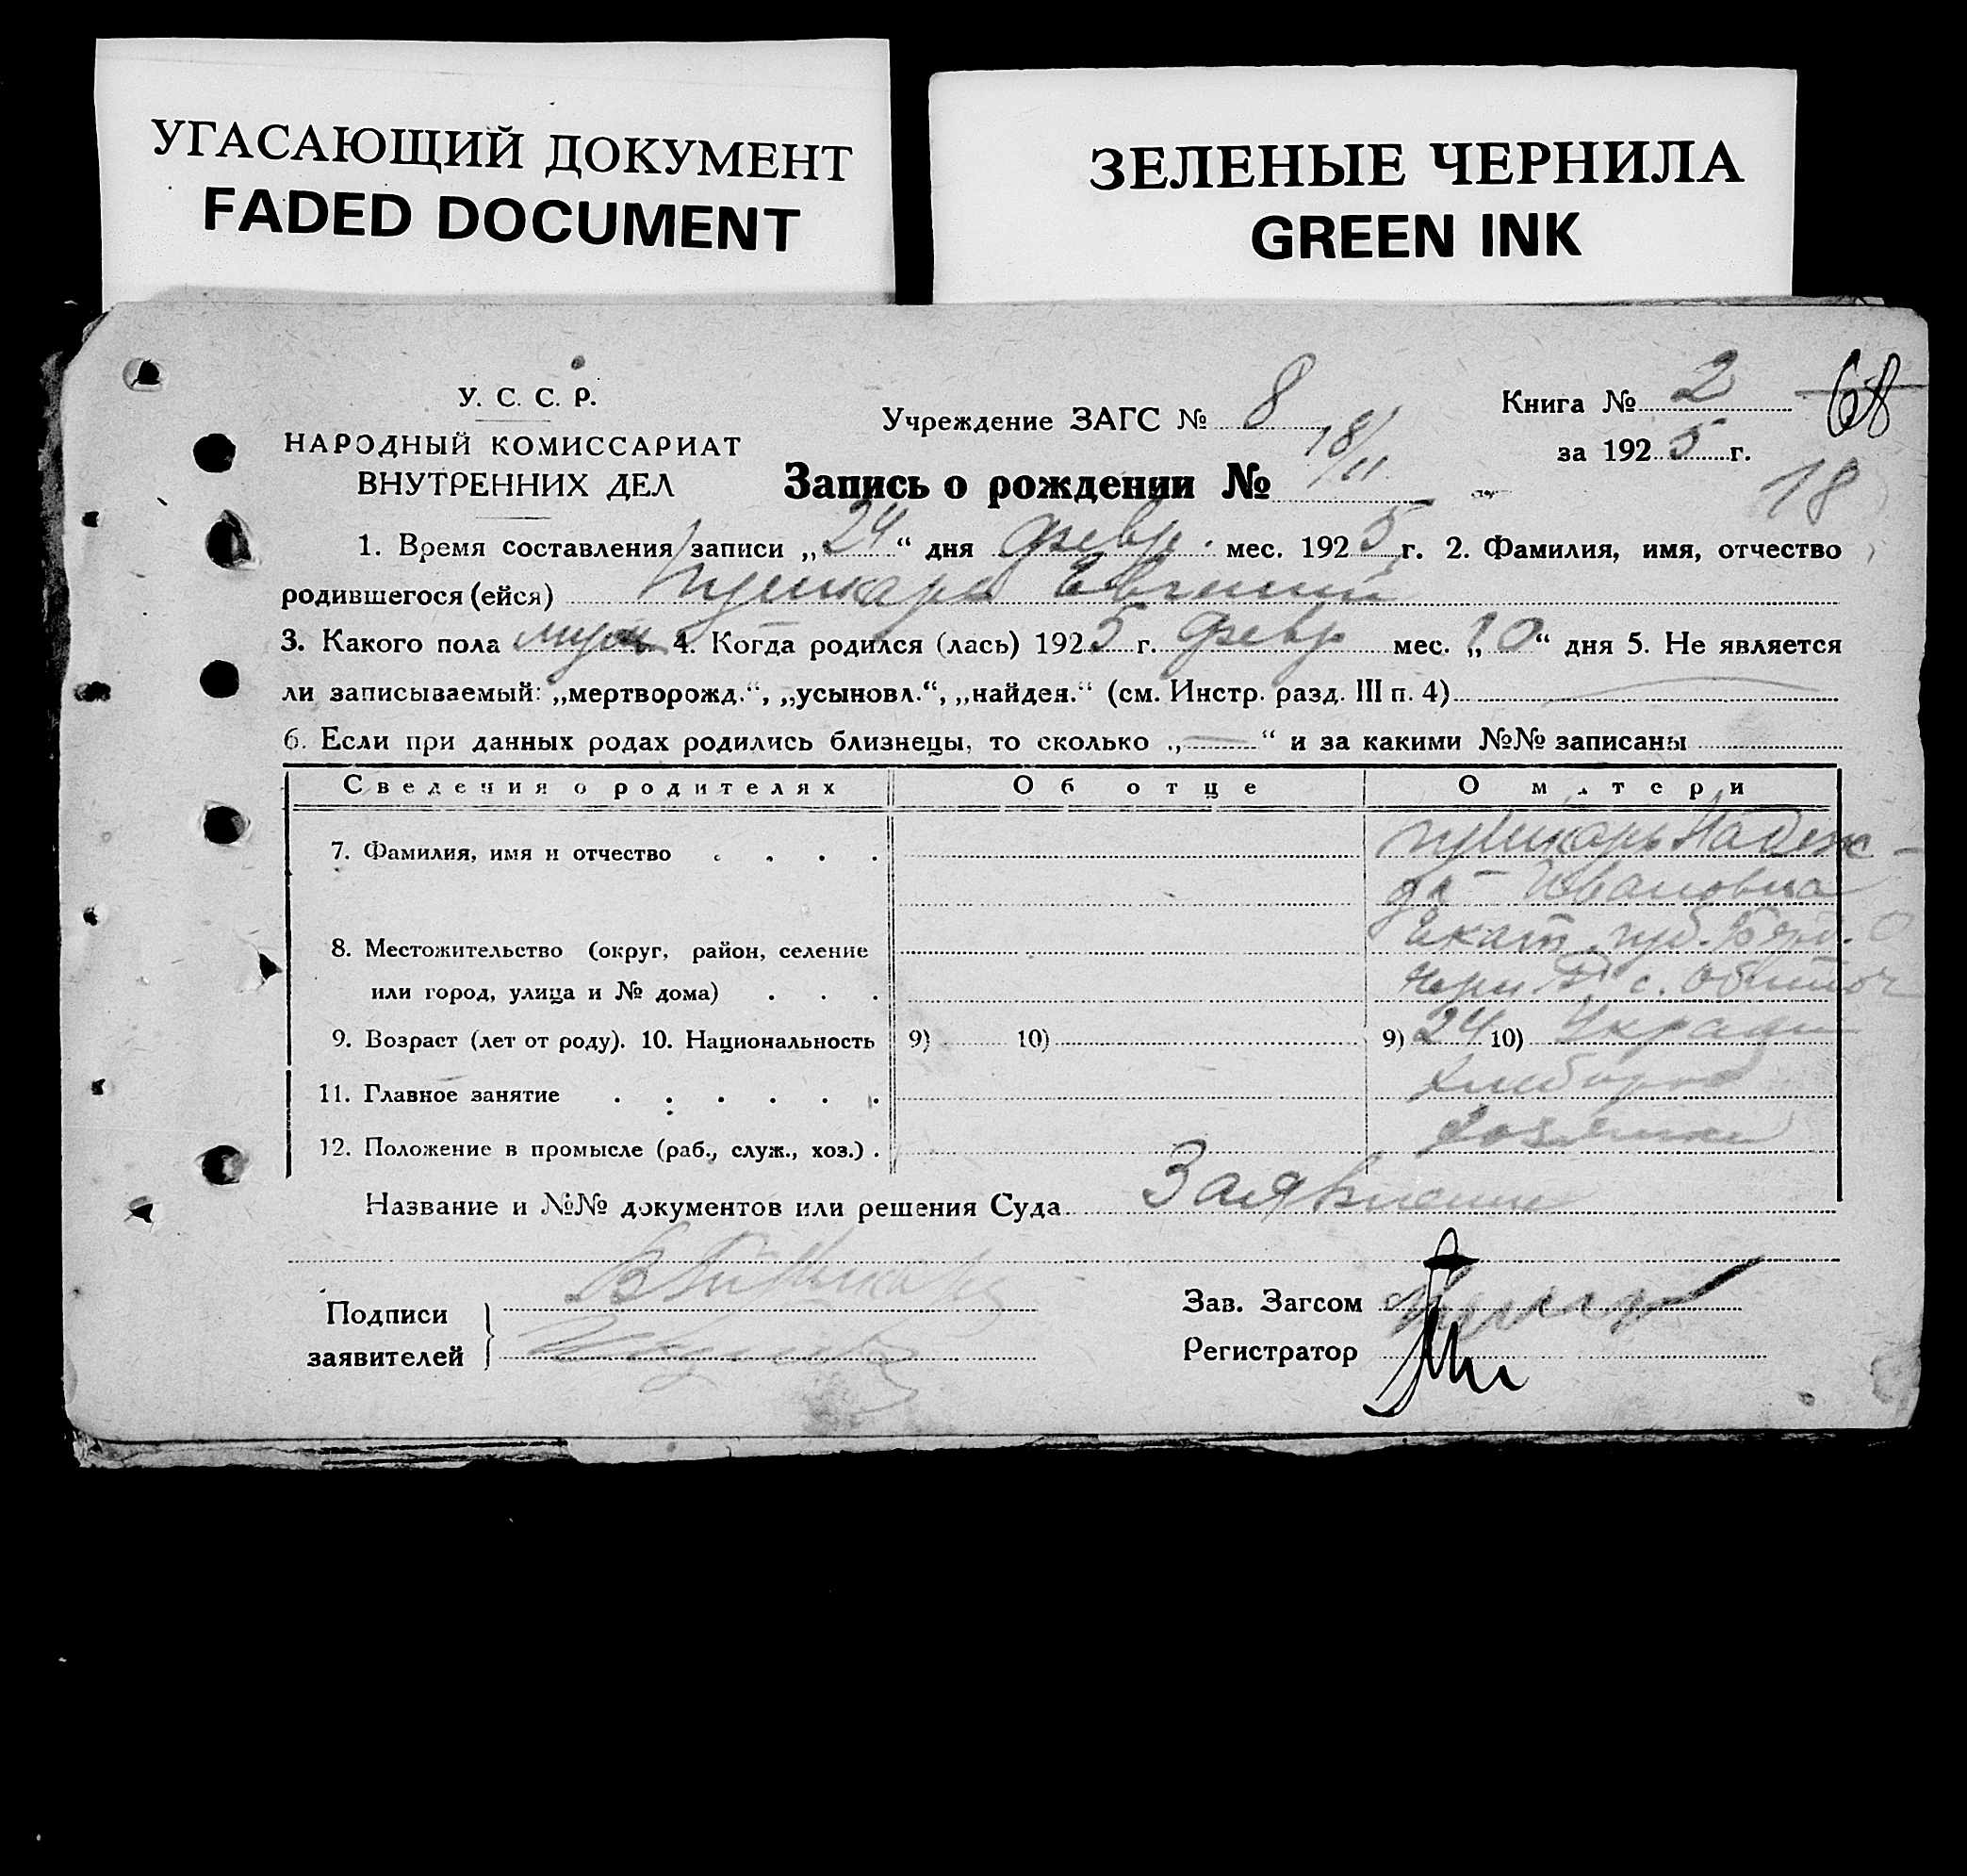 УГАСАЮЩИЙ ДОКУМЕНТ
FADED DOCUMENT
ЗЕЛЕНЫЕ ЧЕРНИЛА
GREEN INK
У. С. С. Р.
НАРОДНЫЙ КОМИССАРИАТ
ВНУТРЕННИХ ДЕЛ
Учреждение ЗАГС № 8
Книга № 2
68
за 1925 г.
18
Запись о рождении № 18/11
1. Время составления записи „24“ дня февр. мес. 1925 г. 2. Фамилия, имя, отчество
родившегося (ейся) Пушкарь Евгений
3. Какого пола муж 4. Когда родился (лась) 1925 г. февр мес. „10“ дня 5. Не является
ли записываемый: „мертворожд.“, „усыновл.“, „найден.“ (см. Инстр. разд. III п. 4)
6. Если при данных родах родились близнецы, то сколько „—“ и за какими №№ записаны
Сведения о родителях Об отце О матери
7. Фамилия, имя и отчество Пушкарь Надеж-
да Ивановна
8. Местожительство (округ, район, селение Екат. губ. Берд. О
или город, улица и № дома) с. Обиточ
9. Возраст (лет от роду). 10. Национальность 9) 10) 9) 24 10) Украин
11. Главное занятие Хлебороб
12. Положение в промысле (раб., служ., хоз.) Хозяйка
Название и №№ документов или решения Суда Заявление
Подписи
заявителей
Зав. Загсом
Регистратор